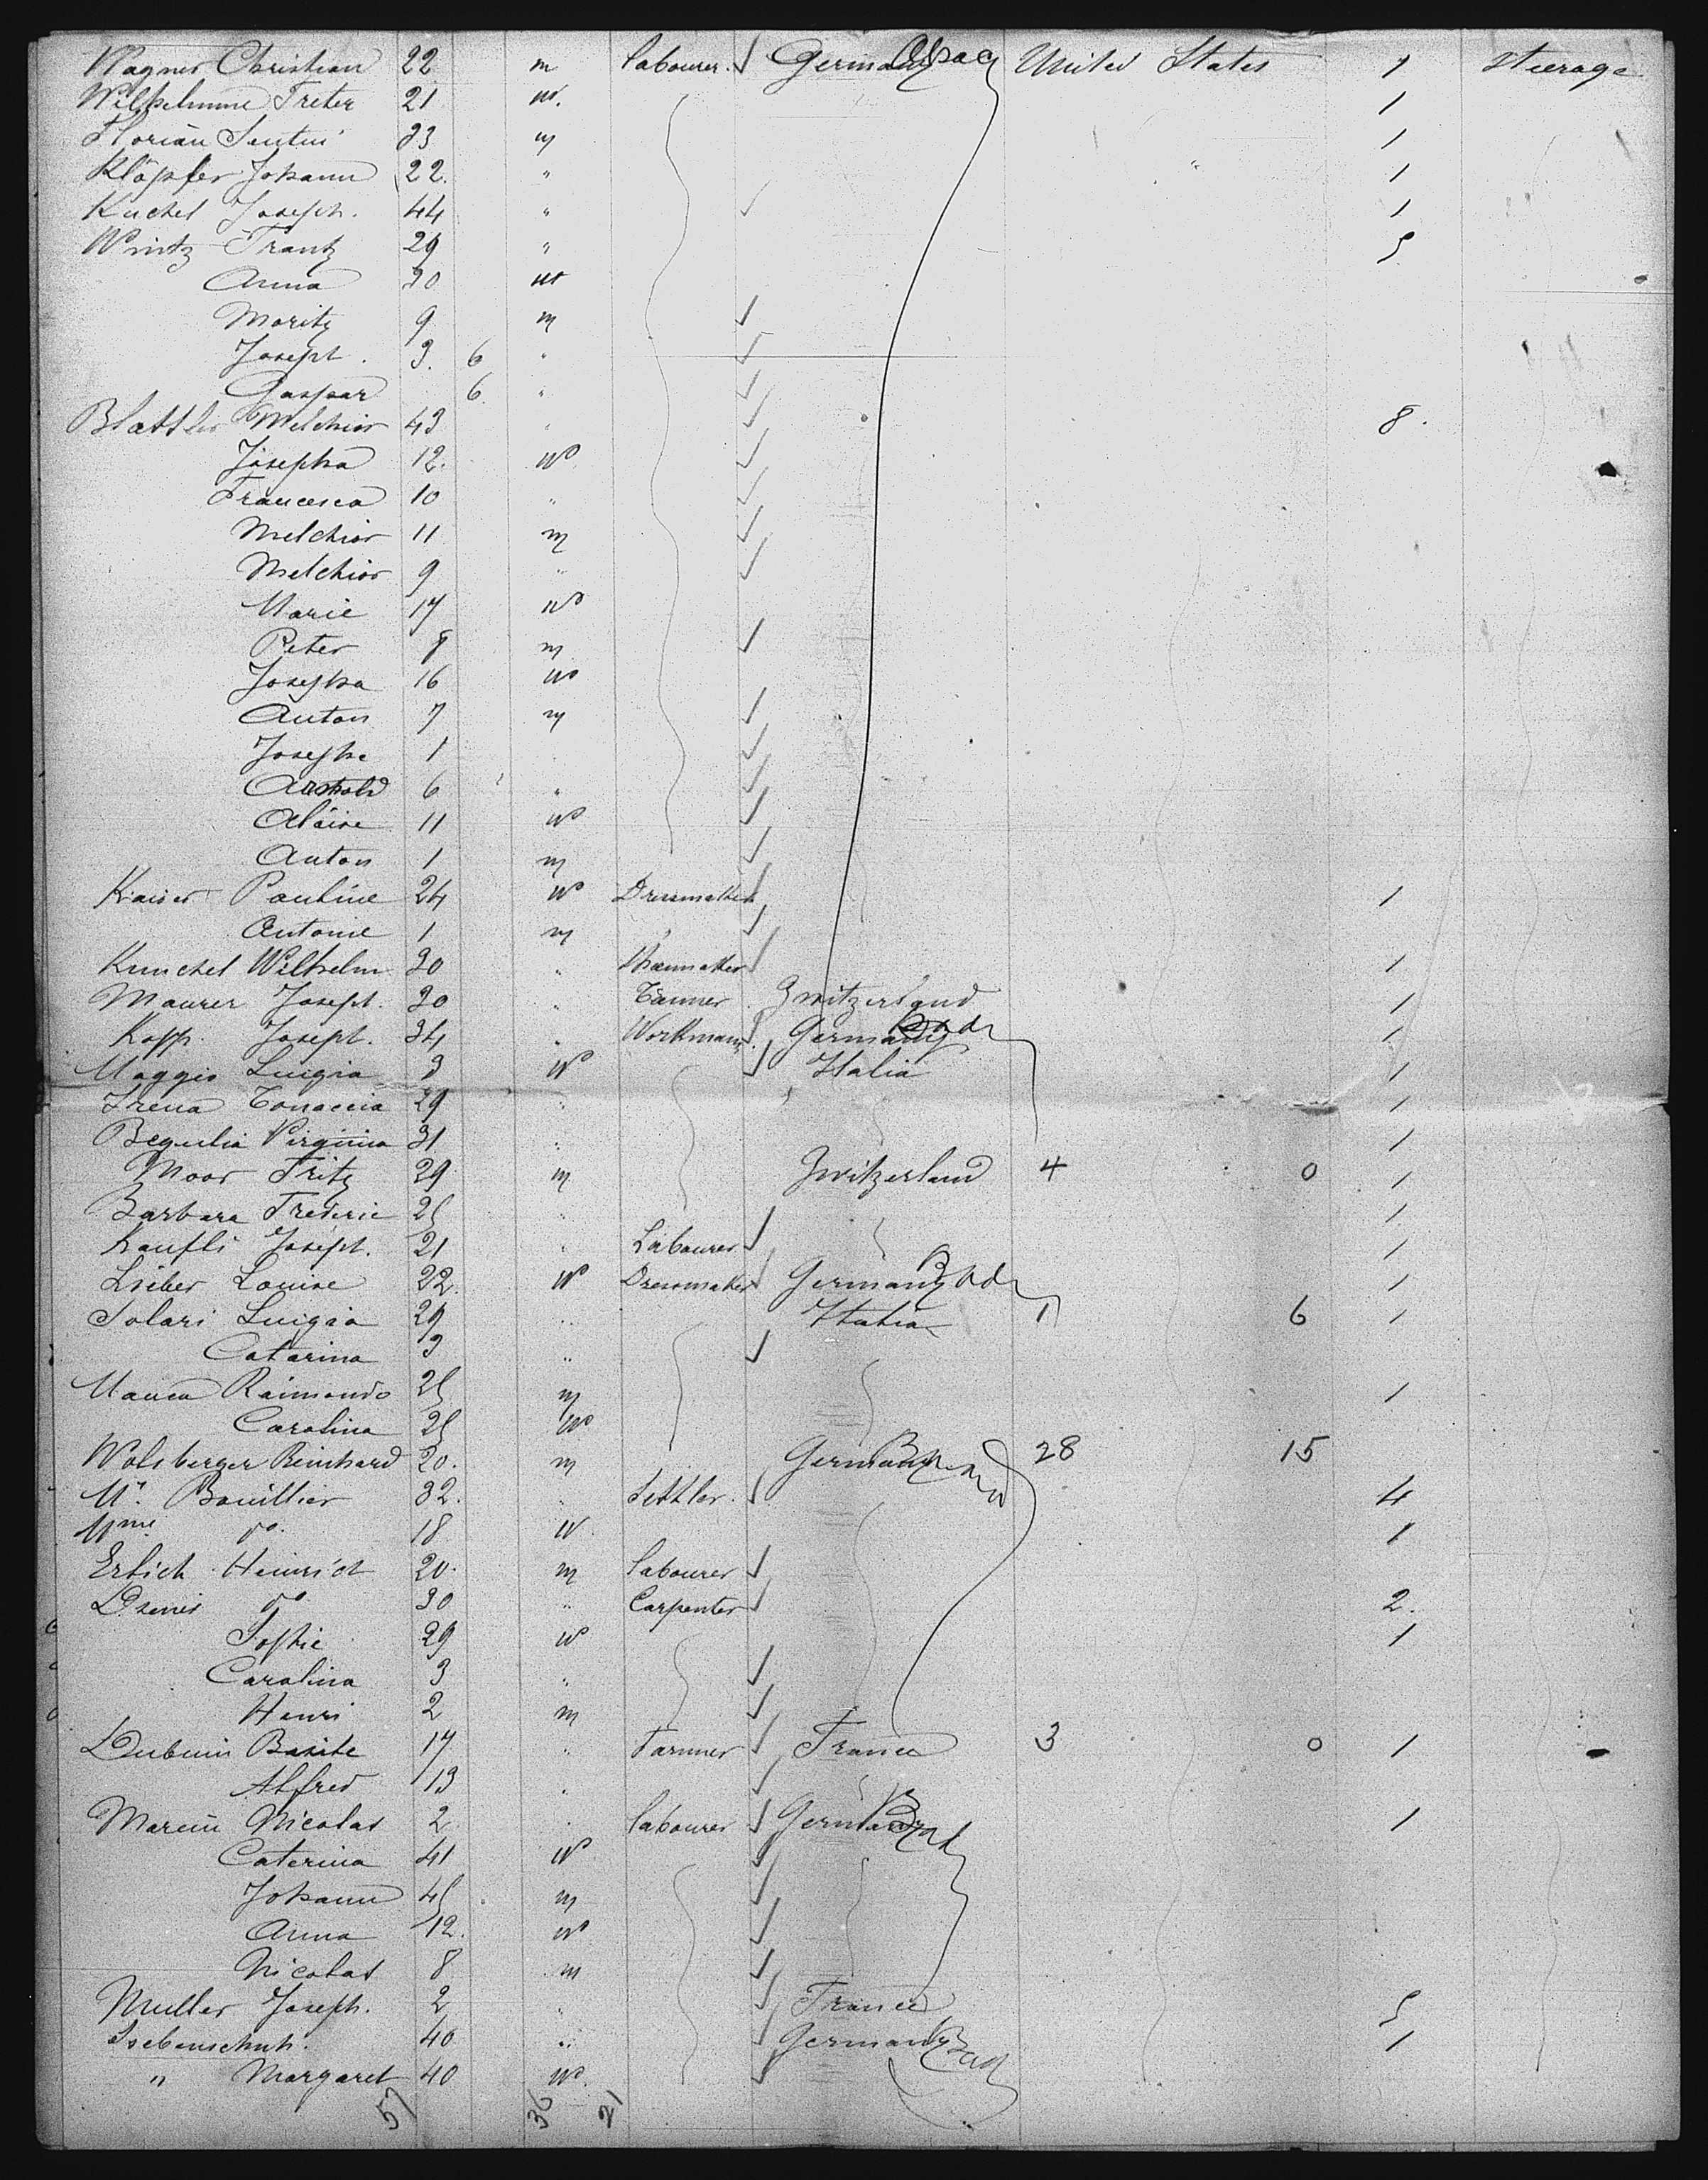 Wagner Christian 22 m Labourer Germany Alsac United States 1 Steerage
Wilhelmine Treter 21 w. 1
Florian 23 m 1
Klöpfer Johann 22. " 1
Kuchel Joseph. 44 " 1
Wintz Frantz 29 " 5
Anna 30 w
Moritz 9 m
Joseph. 3. 6 "
Gaspar 6 "
Blattler Melchior 43 " 8.
Josepha 12. w
Francesca 10 "
Melchior 11 m
Melchior 9 "
Marie 17 w
Peter 8 m
Josepha 16 w
Anton 7 m
Joseph 1
Arnold 6 "
11 w
Anton 1 m
Kaiser Pauline 24 w Dressmaker 1
Antonie 1 m "
Kunchel Wilhelm 30 " Shoemaker 1
Maurer Joseph. 30 " Tanner Zwitzerland 1
Kopp. Joseph. 34 " Workmann. Germany Bad 1
Maggio Luigia 3 w Italia 1
Irena 29 " 1
Virginia 31 " 1
Moor Fritz 29 m Zwitzerland 4 0 1
Barbara Frederic 25 " 1
Kaufli Joseph. 21 " Labourer 1
Lieber Louise 22. w Dressmaker Germany Bad 1
Solari Luigia 29 " Italia 1 6 1
Catarina 3 "
Raimondo 25 m 1
Carolina 25 w
Wolsberger Reinhard 20. m Germany 28 15
Mr. Bouillier 32. " Settler. 4
Mme do. 18 w 1
Erlich Heinrich 20. m Labourer
do 30 " Carpenter 2.
Sophie 29 w 1
Carolina 3 "
Henri 2 m
Basile 17 " Farmer France 3 0 1
Alfred 13 "
Nicolas 2 " Labourer Germany 1
Caterina 41 w
Johann 45 m
Anna 12. w
Nicolas 8 m
Muller Joseph. 2 " France 5
40 " Germany Bad 1
" Margaret 40 w.
57 36 21